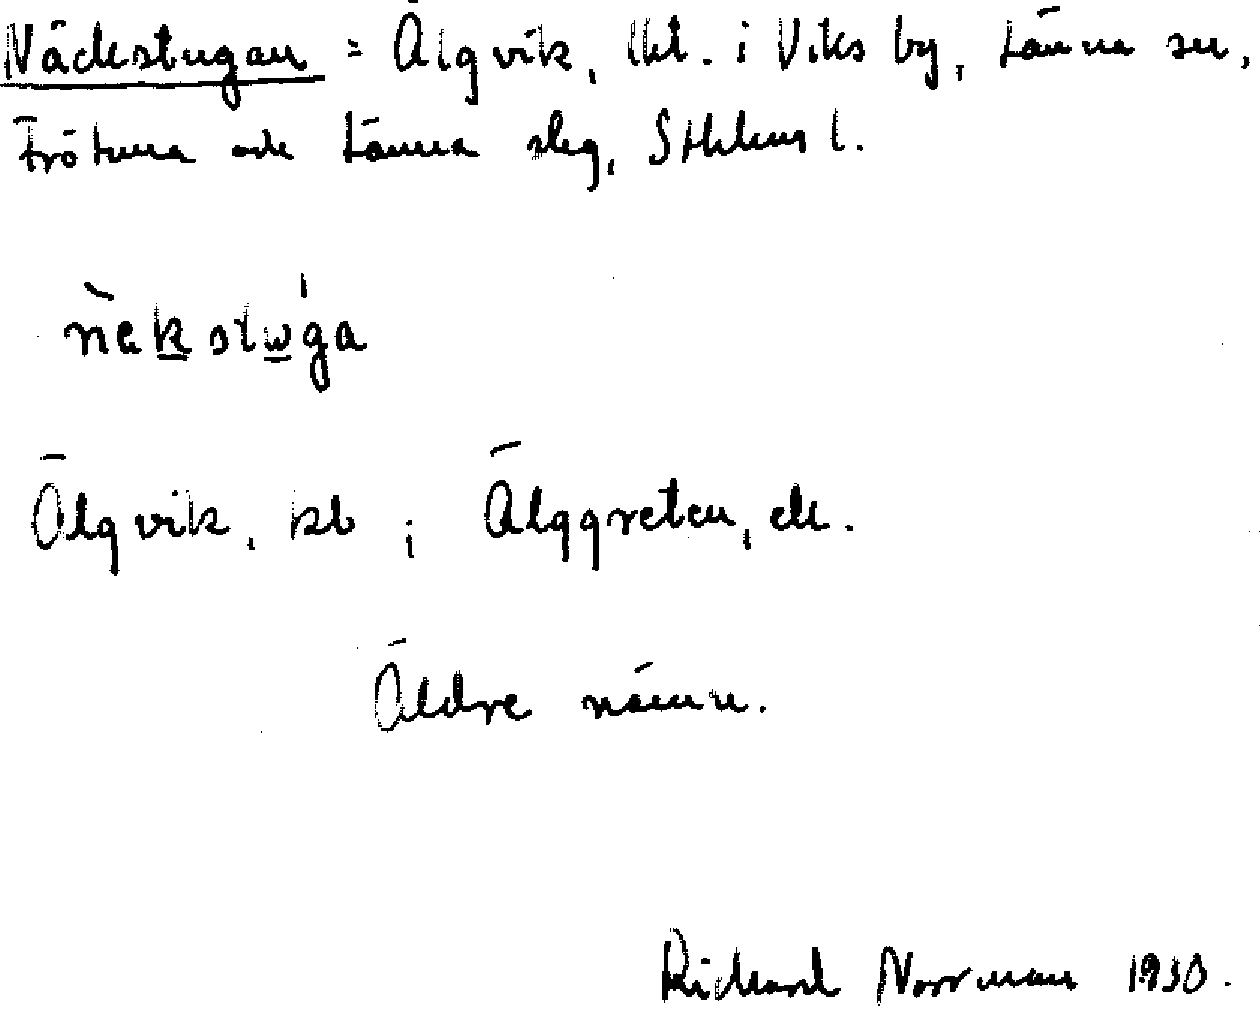 Näckstugan = Älgvik, lht. i Viks by, Länna sn,
Frötuna och Länna slg, Sthlms l.
nèkstwga
Älgvik, kb ; Älggreten, ek.
Äldre namn.
Richard Norrman 1930.